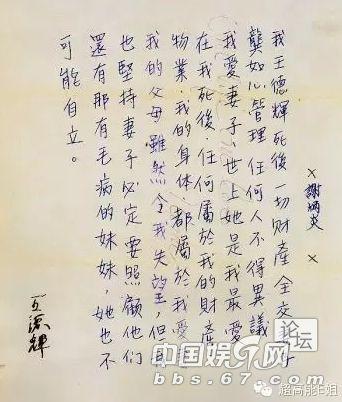 × 謝炳炎 ×
我王德輝死後一切財產全交予
龔如心管理,任何人不得異議
我愛妻子,世上她是我最愛
在我死後,任何屬於我的財產
物業,我的身体,都屬於我愛
我的父母雖然令我失望,但
也堅持妻子必定要照顧他們
還有那有毛病的妹妹,她也不
可能自立。
王德輝
论坛
中国娱乐网
bbs.67.com
超高能E姐